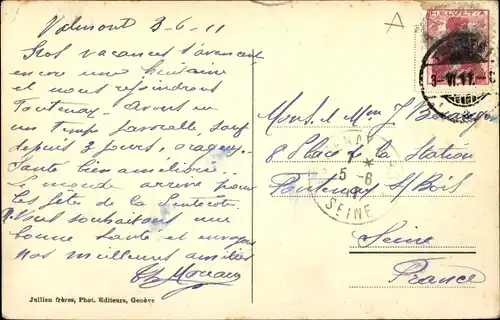 Valmont 3-6-11
Nos vacances s'avancent
encore une huitaine
et nous rejoindrons
Fontenay. Avons eu
un temps passable sauf
depuis 3 jours, orageux.
Santé bien améliorée.
Le monde arrive pour
les fêtes de la Pentecôte
Vous souhaitons une
bonne santé et envoyons
nos meilleures amitiés
Jullien frères, Phot. Editeurs, Genève
HELVETIA
3-VI.11.
Mons. et Mme J.
8 Place de la Station
Fontenay s/Bois
Seine
France
5-6
SEINE